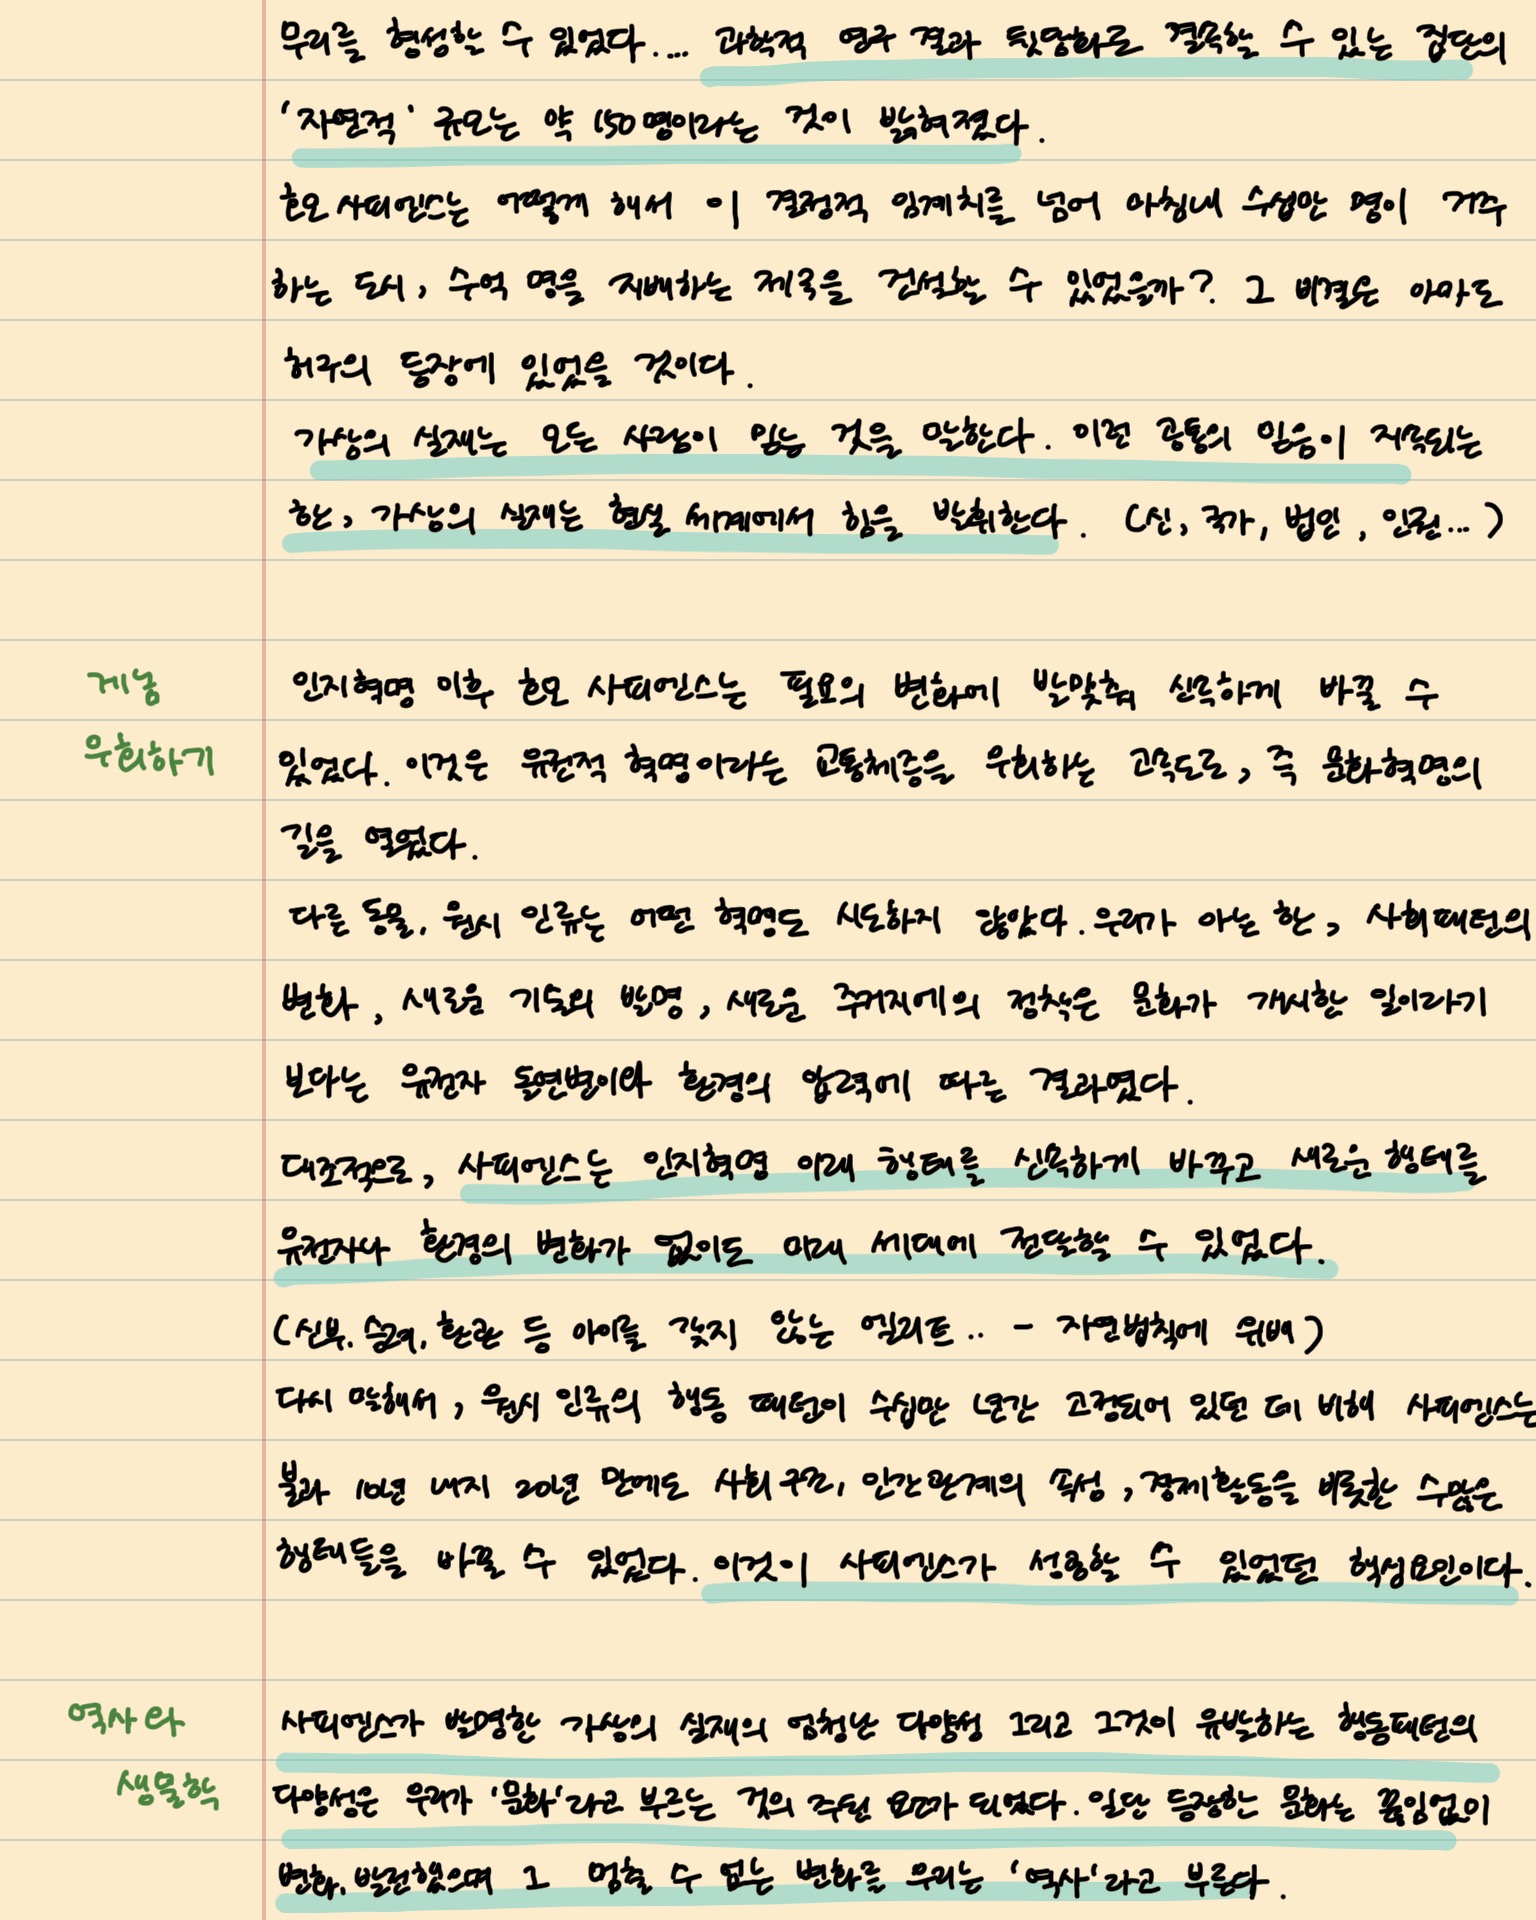 무리를 형성할 수 있었다.... 과학적 연구 결과 뒷담화로 결속할 수 있는 집단의
'자연적' 규모는 약 150명이라는 것이 밝혀졌다.
호모 사피엔스는 어떻게 해서 이 결정적 임계치를 넘어 마침내 수십만 명이 거주
하는 도시, 수억 명을 지배하는 제국을 건설할 수 있었을까? 그 비결은 아마도
허구의 등장에 있었을 것이다.
가상의 실재는 모든 사람이 믿는 것을 말한다. 이런 공통의 믿음이 지속되는
한, 가상의 실재는 현실 세계에서 힘을 발휘한다. (신, 국가, 법인, 인권...)
게놈
우회하기
인지혁명 이후 호모 사피엔스는 필요의 변화에 발맞춰 신속하게 바꿀 수
있었다. 이것은 유전적 혁명이라는 교통체증을 우회하는 고속도로, 즉 문화혁명의
길을 열었다.
다른 동물, 원시 인류는 어떤 혁명도 시도하지 않았다. 우리가 아는 한, 사회패턴의
변화, 새로운 기술의 발명, 새로운 주거지에의 정착은 문화가 개시한 일이라기
보다는 유전자 돌연변이와 환경의 압력에 따른 결과였다.
대조적으로, 사피엔스는 인지혁명 이래 행태를 신속하게 바꾸고 새로운 행태를
유전자나 환경의 변화가 없이도 미래 세대에 전달할 수 있었다.
(신부, 승려, 환관 등 아이를 갖지 않는 엘리트.. - 자연법칙에 위배)
다시 말해서, 원시 인류의 행동 패턴이 수십만 년간 고정되어 있던 데 비해 사피엔스는
불과 10년 내지 20년 만에도 사회 구조, 인간관계의 속성, 경제활동을 비롯한 수많은
행태들을 바꿀 수 있었다. 이것이 사피엔스가 성공할 수 있었던 핵심요인이다.
역사와
생물학
사피엔스가 발명한 가상의 실재의 엄청난 다양성 그리고 그것이 유발하는 행동패턴의
다양성은 우리가 '문화'라고 부르는 것의 주된 요소가 되었다. 일단 등장한 문화는 끊임없이
변화, 발전했으며 그 멈출 수 없는 변화를 우리는 '역사'라고 부른다.